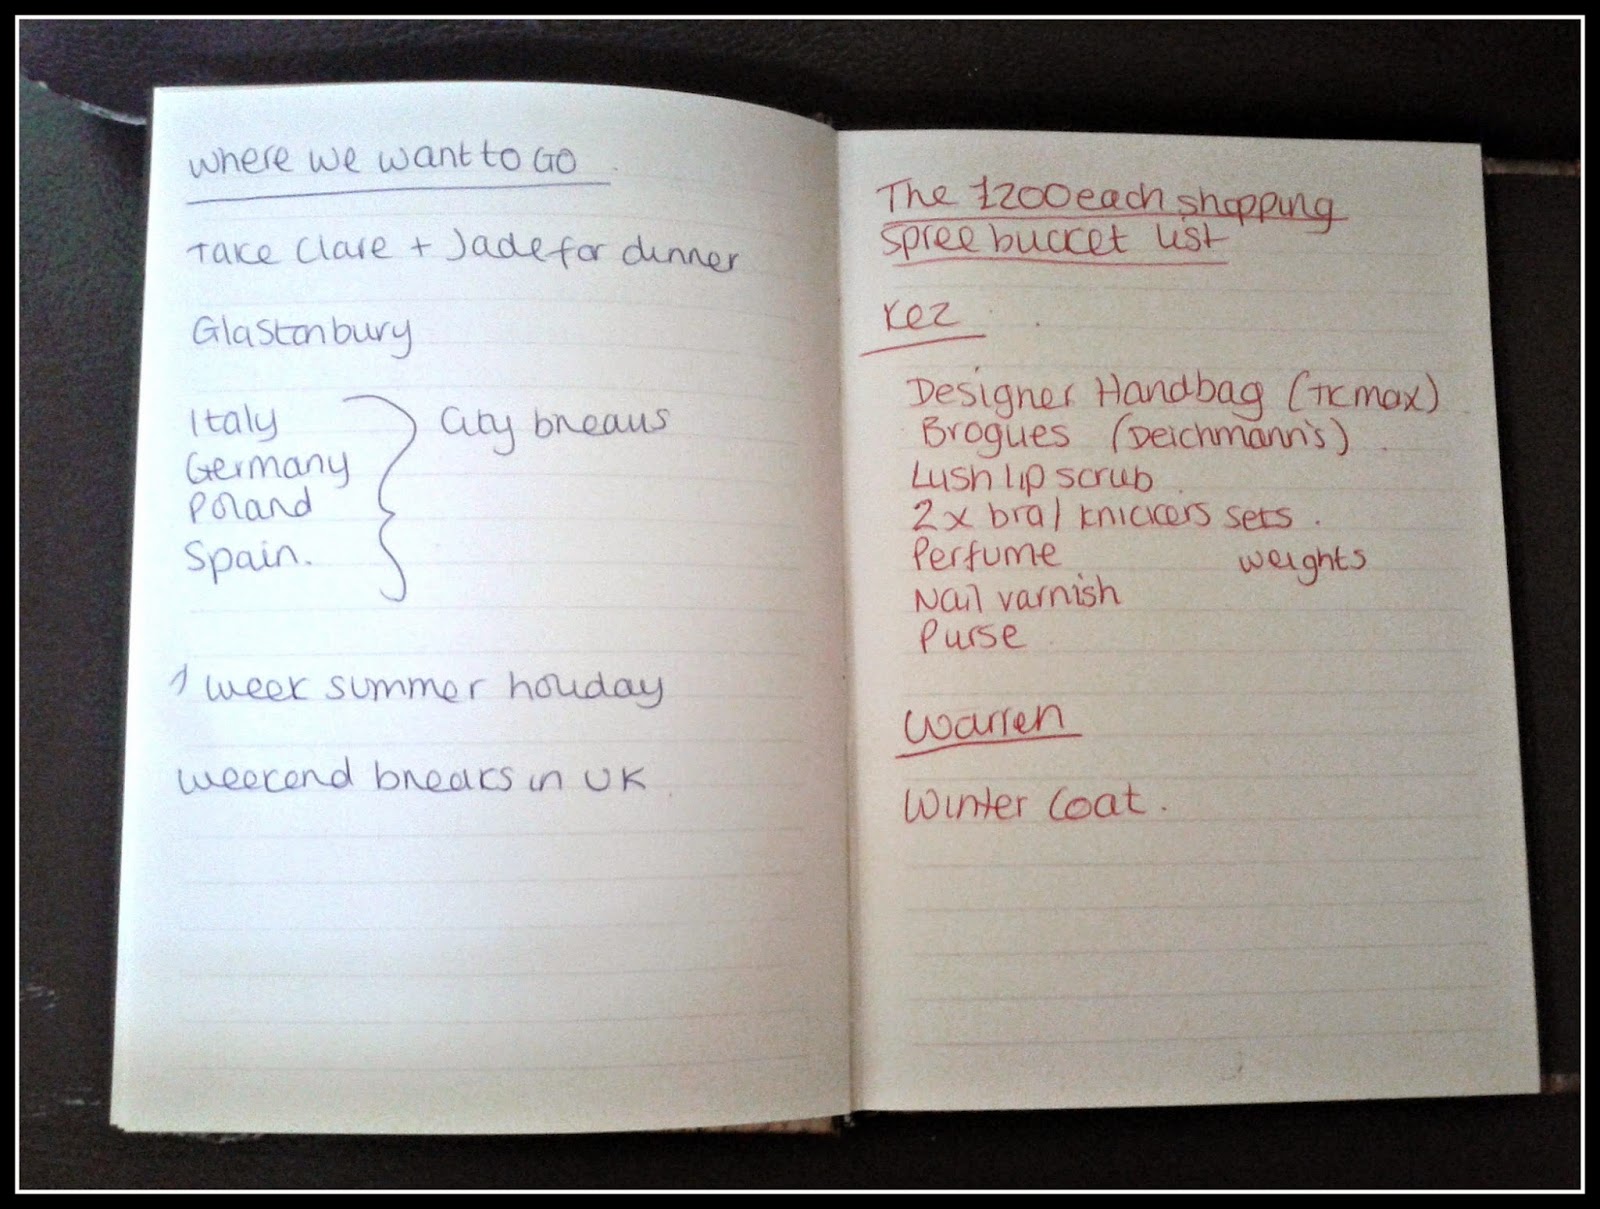 where we want to GO
Take Clare + Jade for dinner
Glastonbury
Italy
City breaks
Germany
Poland
Spain.
1 week summer holiday
weekend breaks in UK
The £200 each shopping
spree bucket list
Kez
Designer Handbag (TK max)
Brogues (Deichmann's)
Lush lip scrub
2 x bra / knickers sets.
Perfume
weights
Nail varnish
Purse
Warren
Winter Coat.